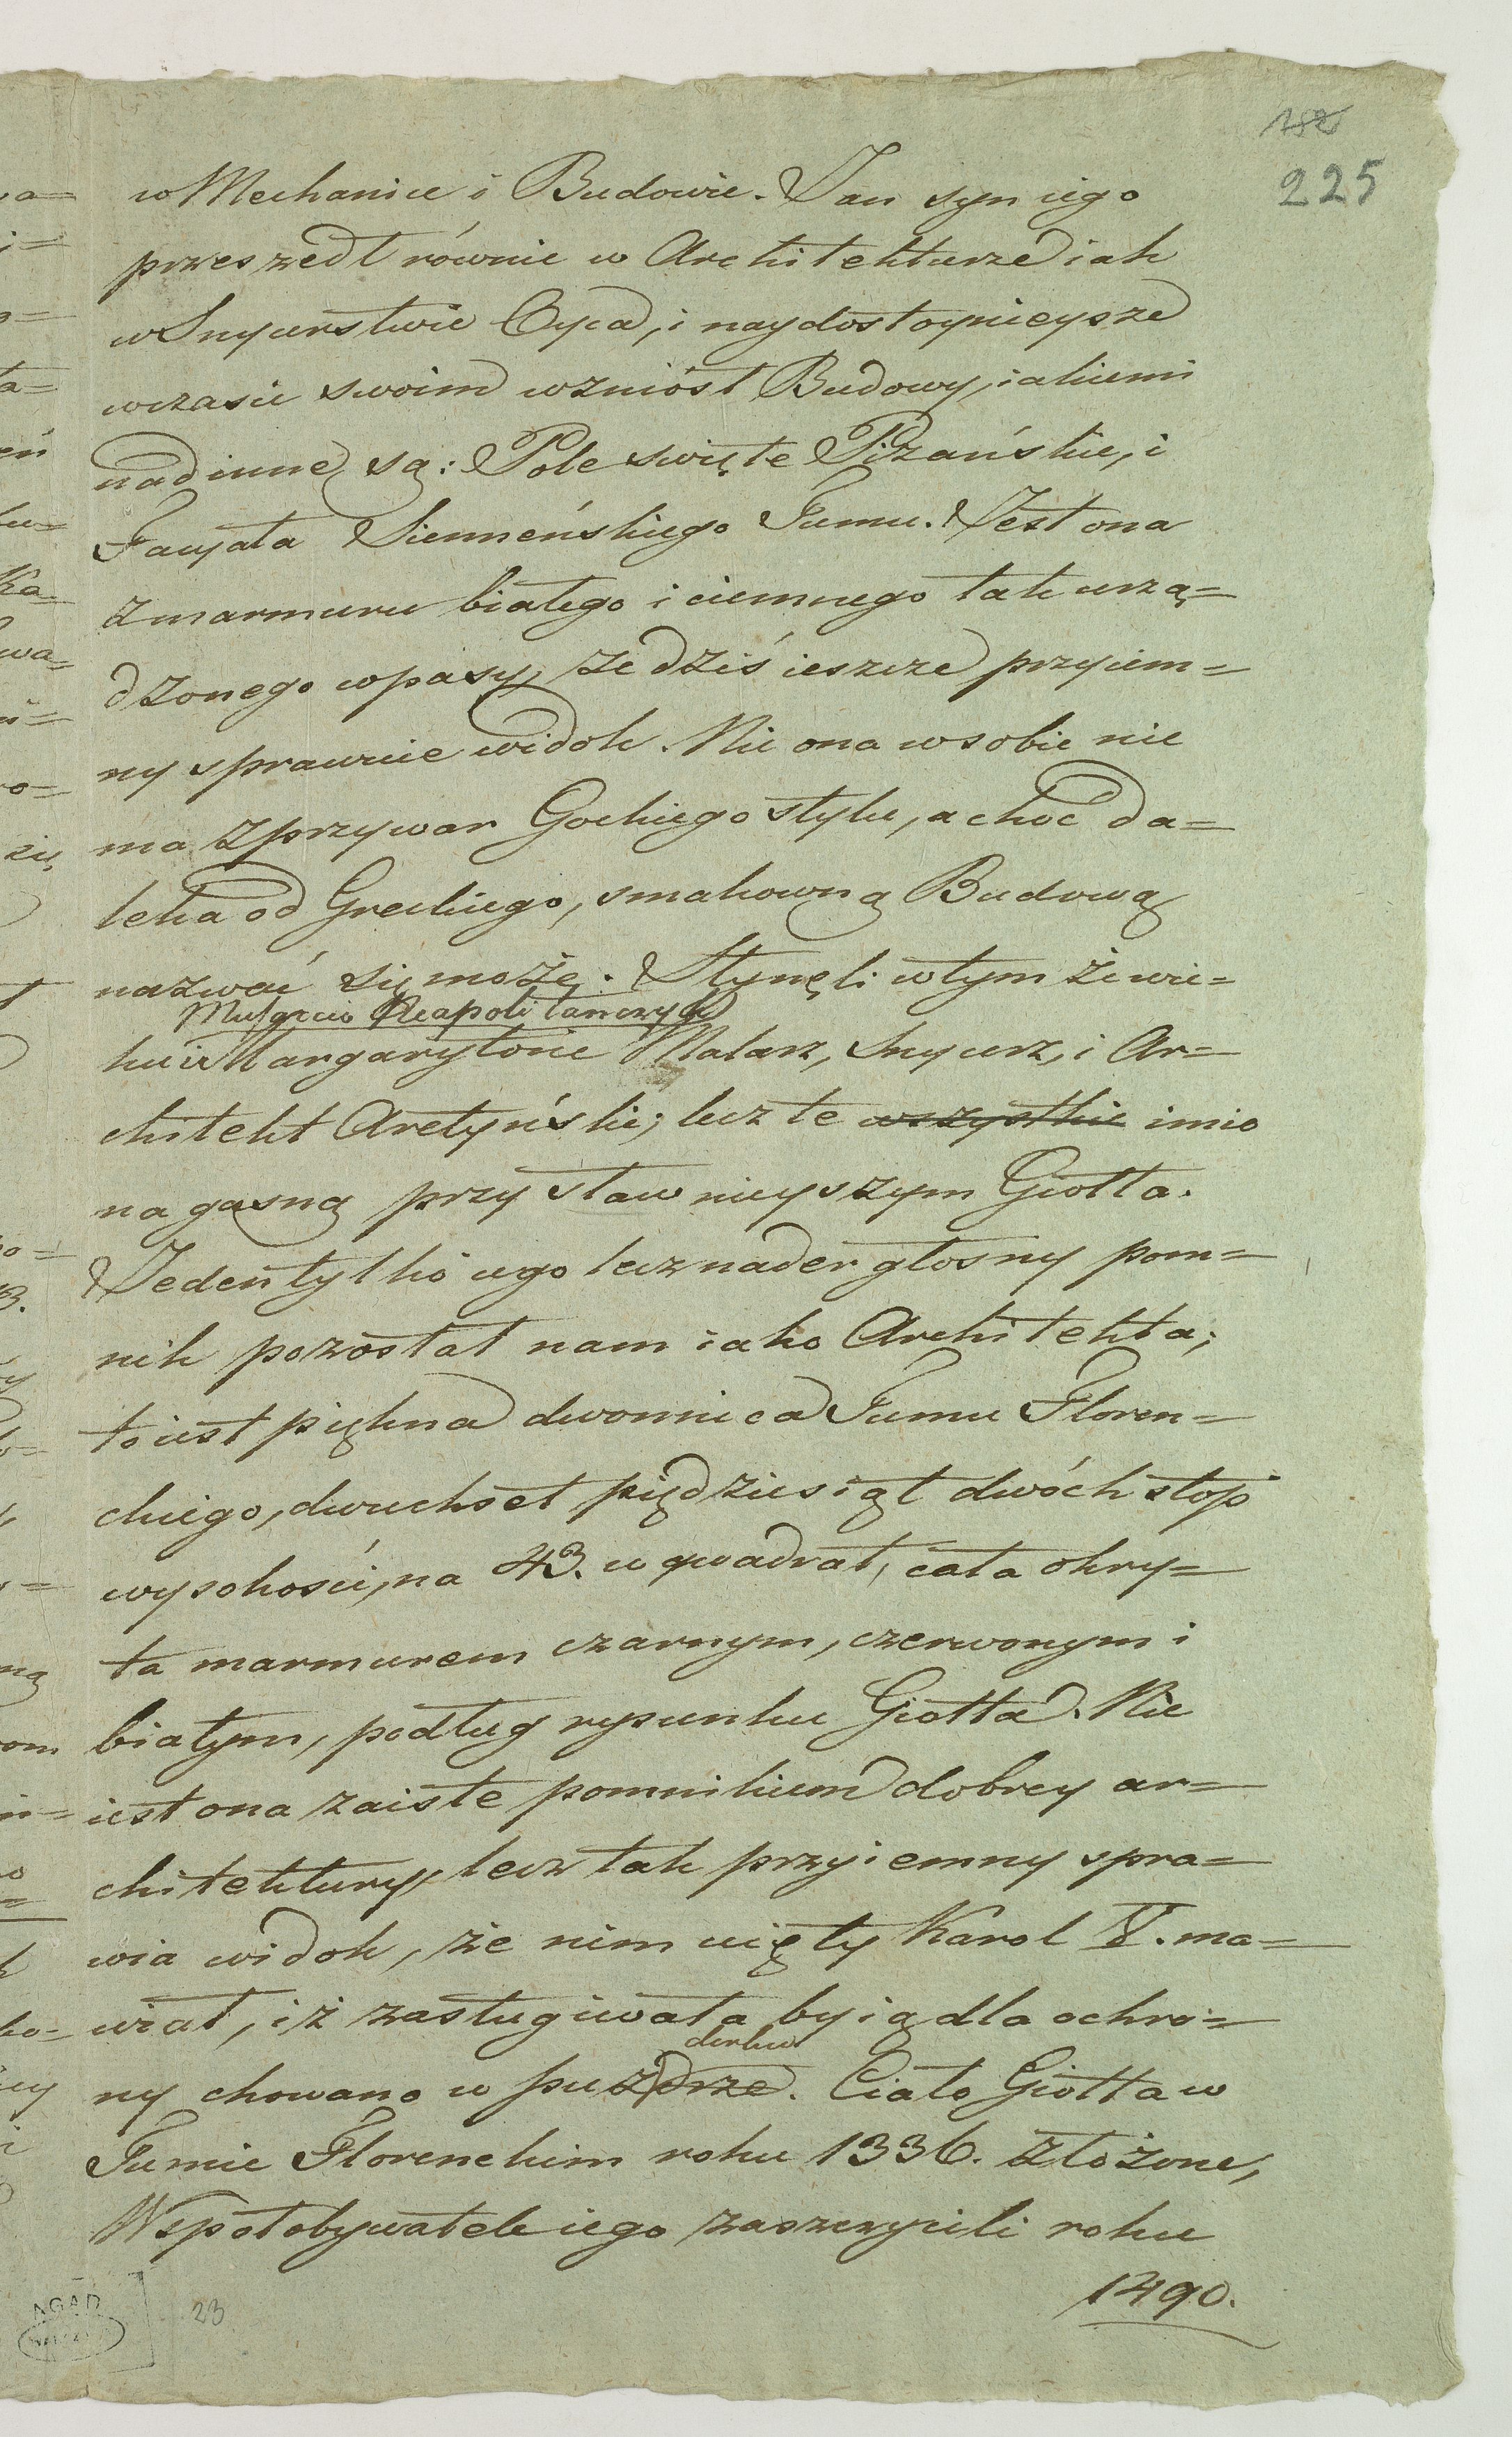 182
225
w Mechanice i Budowie. Jan syn iego
przeszedł równie w Architekturze iak
w Snycerstwie Oyca, i naydostoynieysze
wczasie swoim wzniósł Budowy, iakiemi
nadinne są: Pole swięte Pizańskie, i
Facyata Sienneńskiego Tumu. Jest ona
z marmuru białego i ciemnego tak urzą=
dzonego wpasy, że dziś ieszcze przyiem=
ny sprawuie widok. Nic ona wsobie nie
ma zprzywar Gockiego stylu, a choć da=
leka od Greckiego, smakowną Budową
nazwać się może. Słynęli wtym że wie=
Mulgccio Neapolitańczyk
ku i Margarytone Malarz, Snycerz, i Ar=
chitekt Aretyński; lecz te wszystkie imio
na gasną przy sławnieyszym Giotta.
Jeden tylko iego lecz nader głosny pom=
nik pozostał nam iako Architekta;
to iest piękna dwonnica Tumu Floren=
ckiego, dwuchset piędziesiąt dwóch stop
wysokości, na 43. w qwadrat, cała okry=
ta marmurem czarnym, czerwonym i
białym, podług rysunku Giotta. Nie
iest ona zaiste pomnikiem dobrey ar=
chitektury, lecz tak przyiemny spra=
wia widok, że nim uięty Karol V. ma=
wiał, iż zasługiwała by ią dla ochro=
ny chowano w puzdrze. Ciało Giotta w
Tumie Florenckim roku 1336. złożone,
Współobywatele iego zaszczycili roku
1490.
AGAD
23